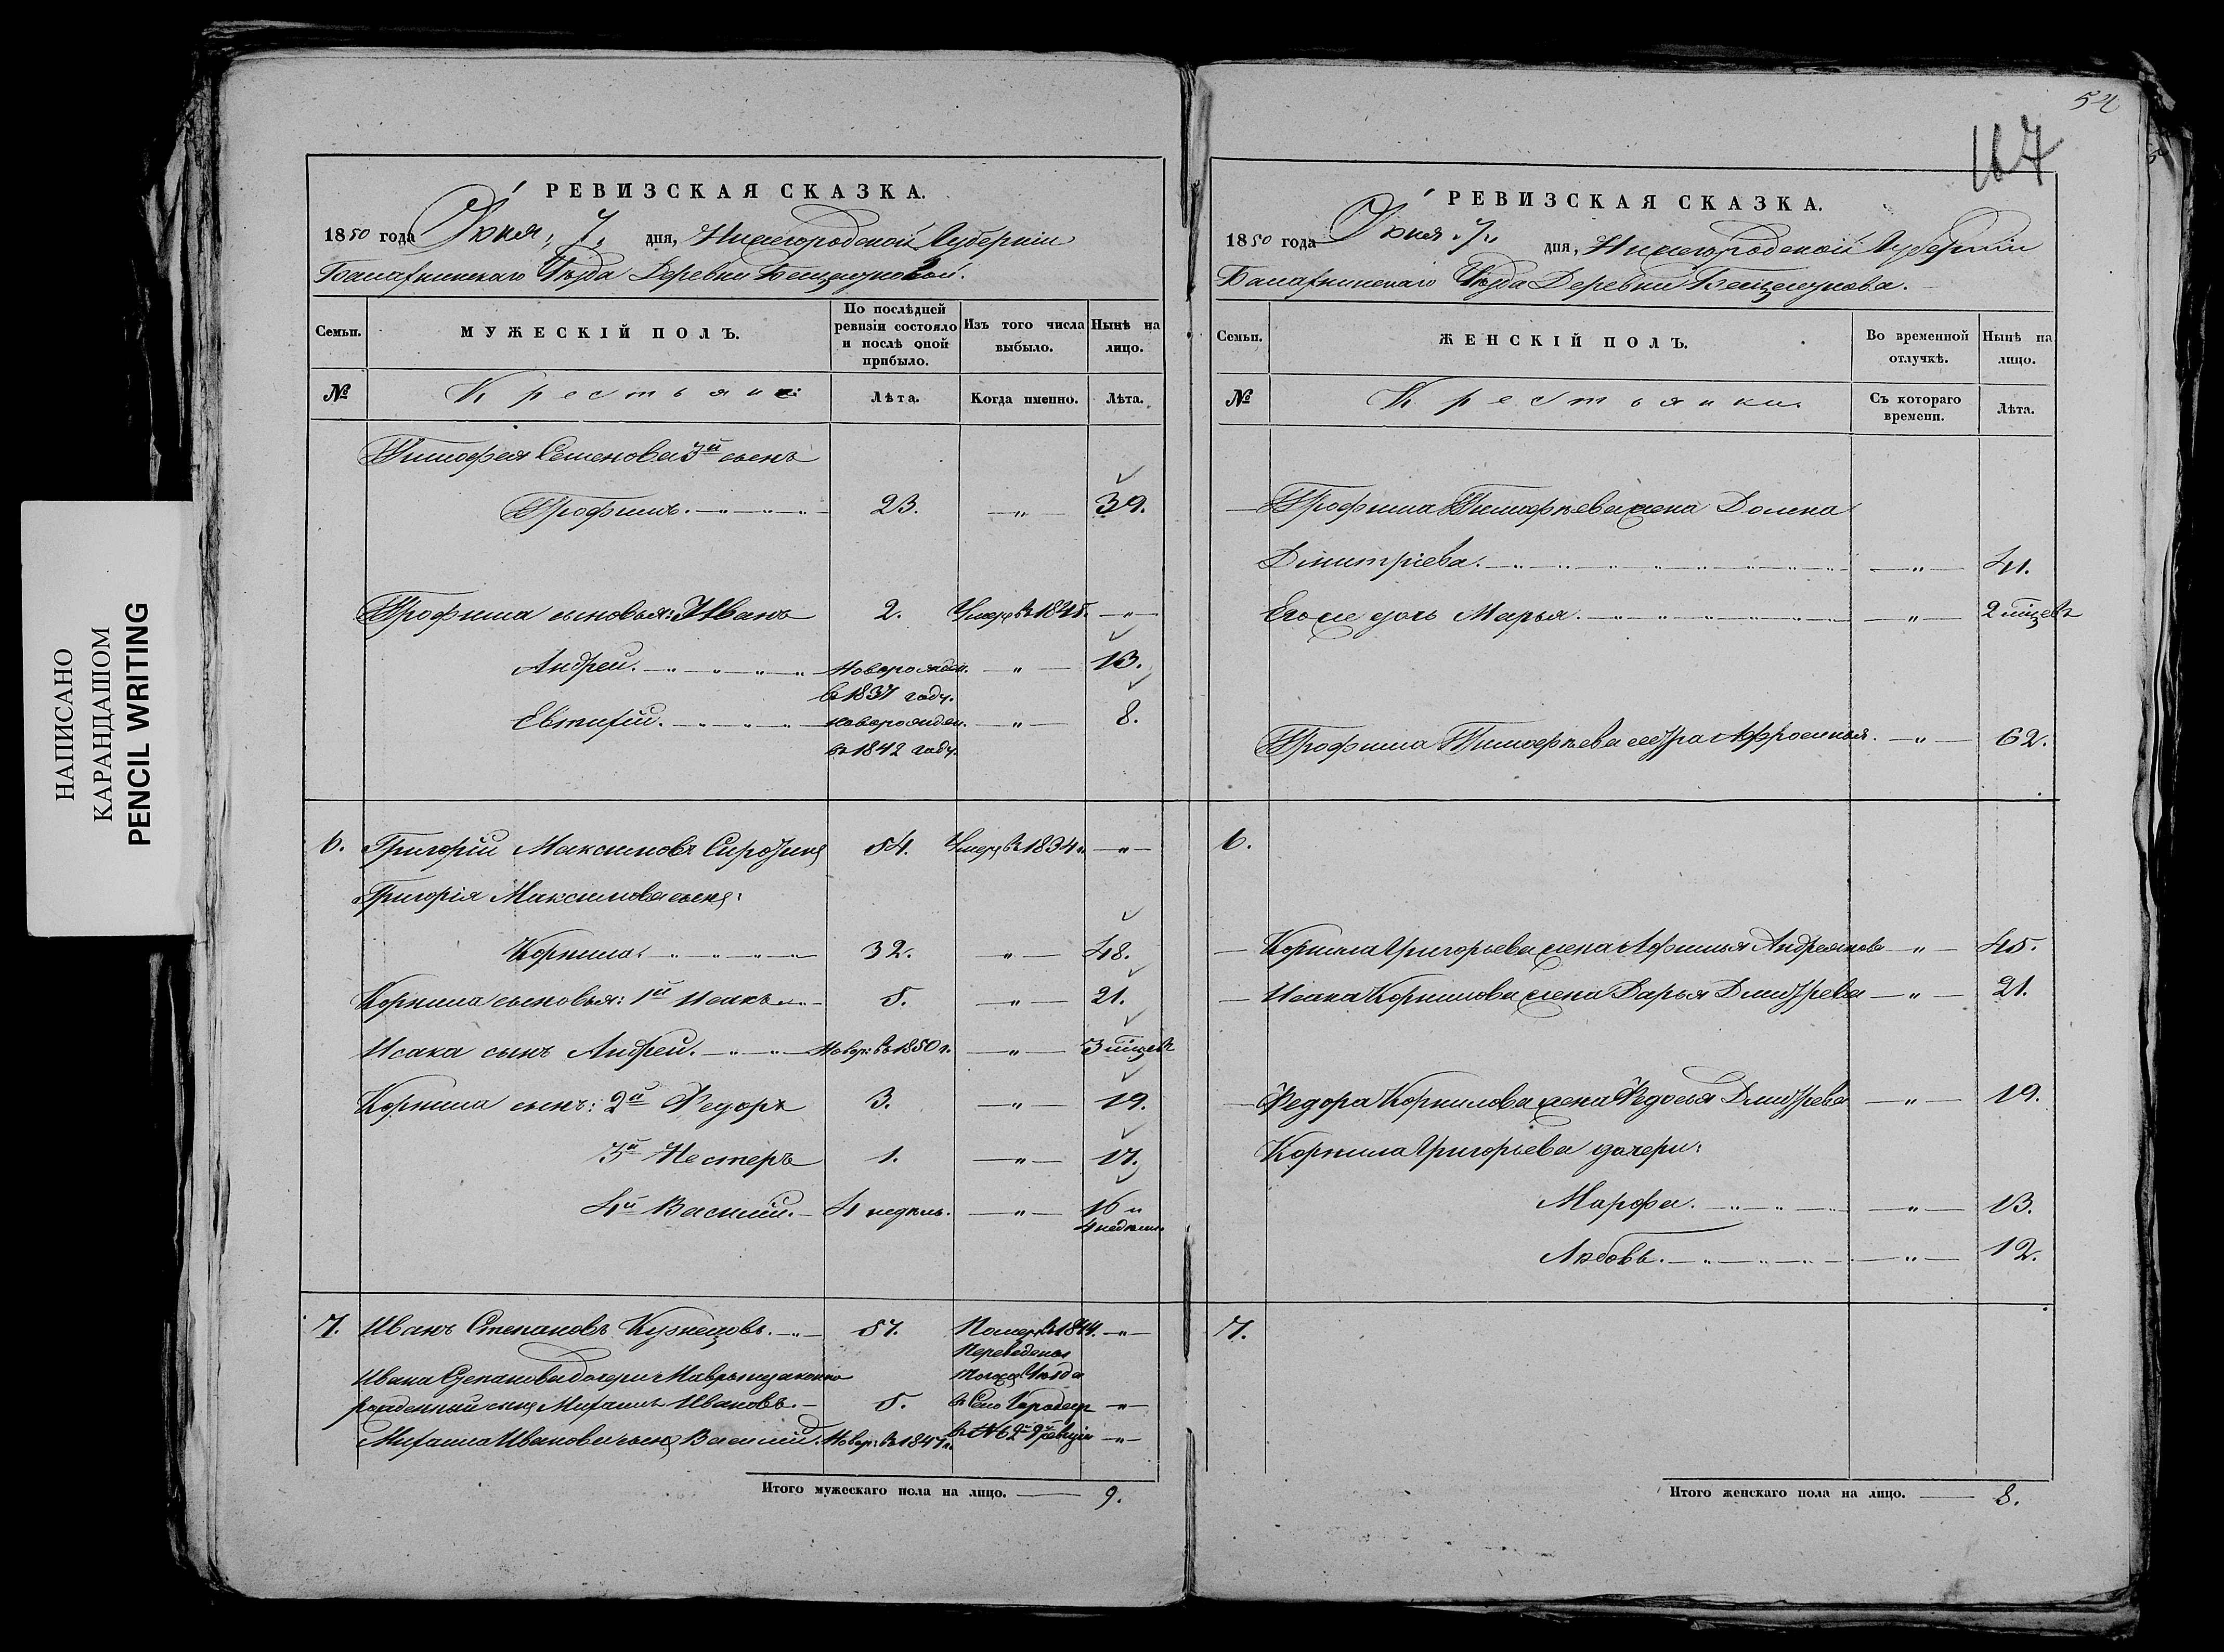 НАПИСАНО
КАРАНДАШОМ
PENCIL WRITING
РЕВИЗСКАЯ СКАЗКА.
1850 года Июня „7„ дня, Нижегородской Губерніи
Балахнинскаго Уѣзда Деревни
Семьи.
МУЖЕСКІЙ ПОЛЪ.
По послѣдней ревизіи состояло и послѣ оной прибыло.
Изъ того числа выбыло.
Нынѣ на лицо.
№
Крестьяне:
Лѣта.
Когда именно.
Лѣта.
Тимофея Семенова 3й сынъ
Трофимъ. 23. „ 39.
Трофима сыновья: Иванъ 2. Умеръ въ 1845. „
Андрей. новорожден. „ 13.
въ 1837 году.
Евтифій. новорожден. „ 8.
въ 1842 году.
6. Григорій Максимовъ 54. Умеръ въ 1834 „
Григорія Максимова сынъ:
Корнила 32. „ 48.
Корнила сыновья: 1й Исакъ 5. „ 21.
Исака сынъ Андрей. Новор: въ 1850 г. „ 3 мѣсяц.
Корнила сынъ: 2й Федоръ 3. „ 19.
3й Нестеръ 1. „ 17.
4й Василій. 4 недѣль. „ 16 и
4 недѣли.
7. Иванъ Степановъ Кузнецовъ. 57. Помер. въ 1844. „
Переведены
Ивана Степанова дочери Мавры незаконно
тогожъ Уѣзда
рожденный сынъ Михаилъ Ивановъ. 5. въ Село Городецъ „
Михаила Иванова сынъ Василій. Новор: въ 1847 г. въ № 62й 9й ревизіи „
Итого мужескаго пола на лицо. 9.
54
117
РЕВИЗСКАЯ СКАЗКА.
1850 года Июня „7„ дня, Нижегородской Губерніи
Балахнинскаго Уѣзда Деревни
Семьи.
ЖЕНСКІЙ ПОЛЪ.
Во временной отлучкѣ.
Нынѣ на лицо.
№
Крестьянки.
Съ котораго времени.
Лѣта.
Трофима Тимофѣева жена Домна
Дмитріева. „ 41.
Его же дочь Марья. „ 2 мѣсяц.
Трофима Тимофѣева сестра Афросинья. „ 62.
6.
Корнила Григорьева жена Афимья Андреянова „ 45.
Исака Корнилова жена Дарья Дмитрева „ 21.
Федора Корнилова жена Федосья Дмитрева „ 19.
Корнила Григорьева дочери:
Марфа. „ 13.
Любовь. „ 12.
7.
Итого женскаго пола на лицо. 8.